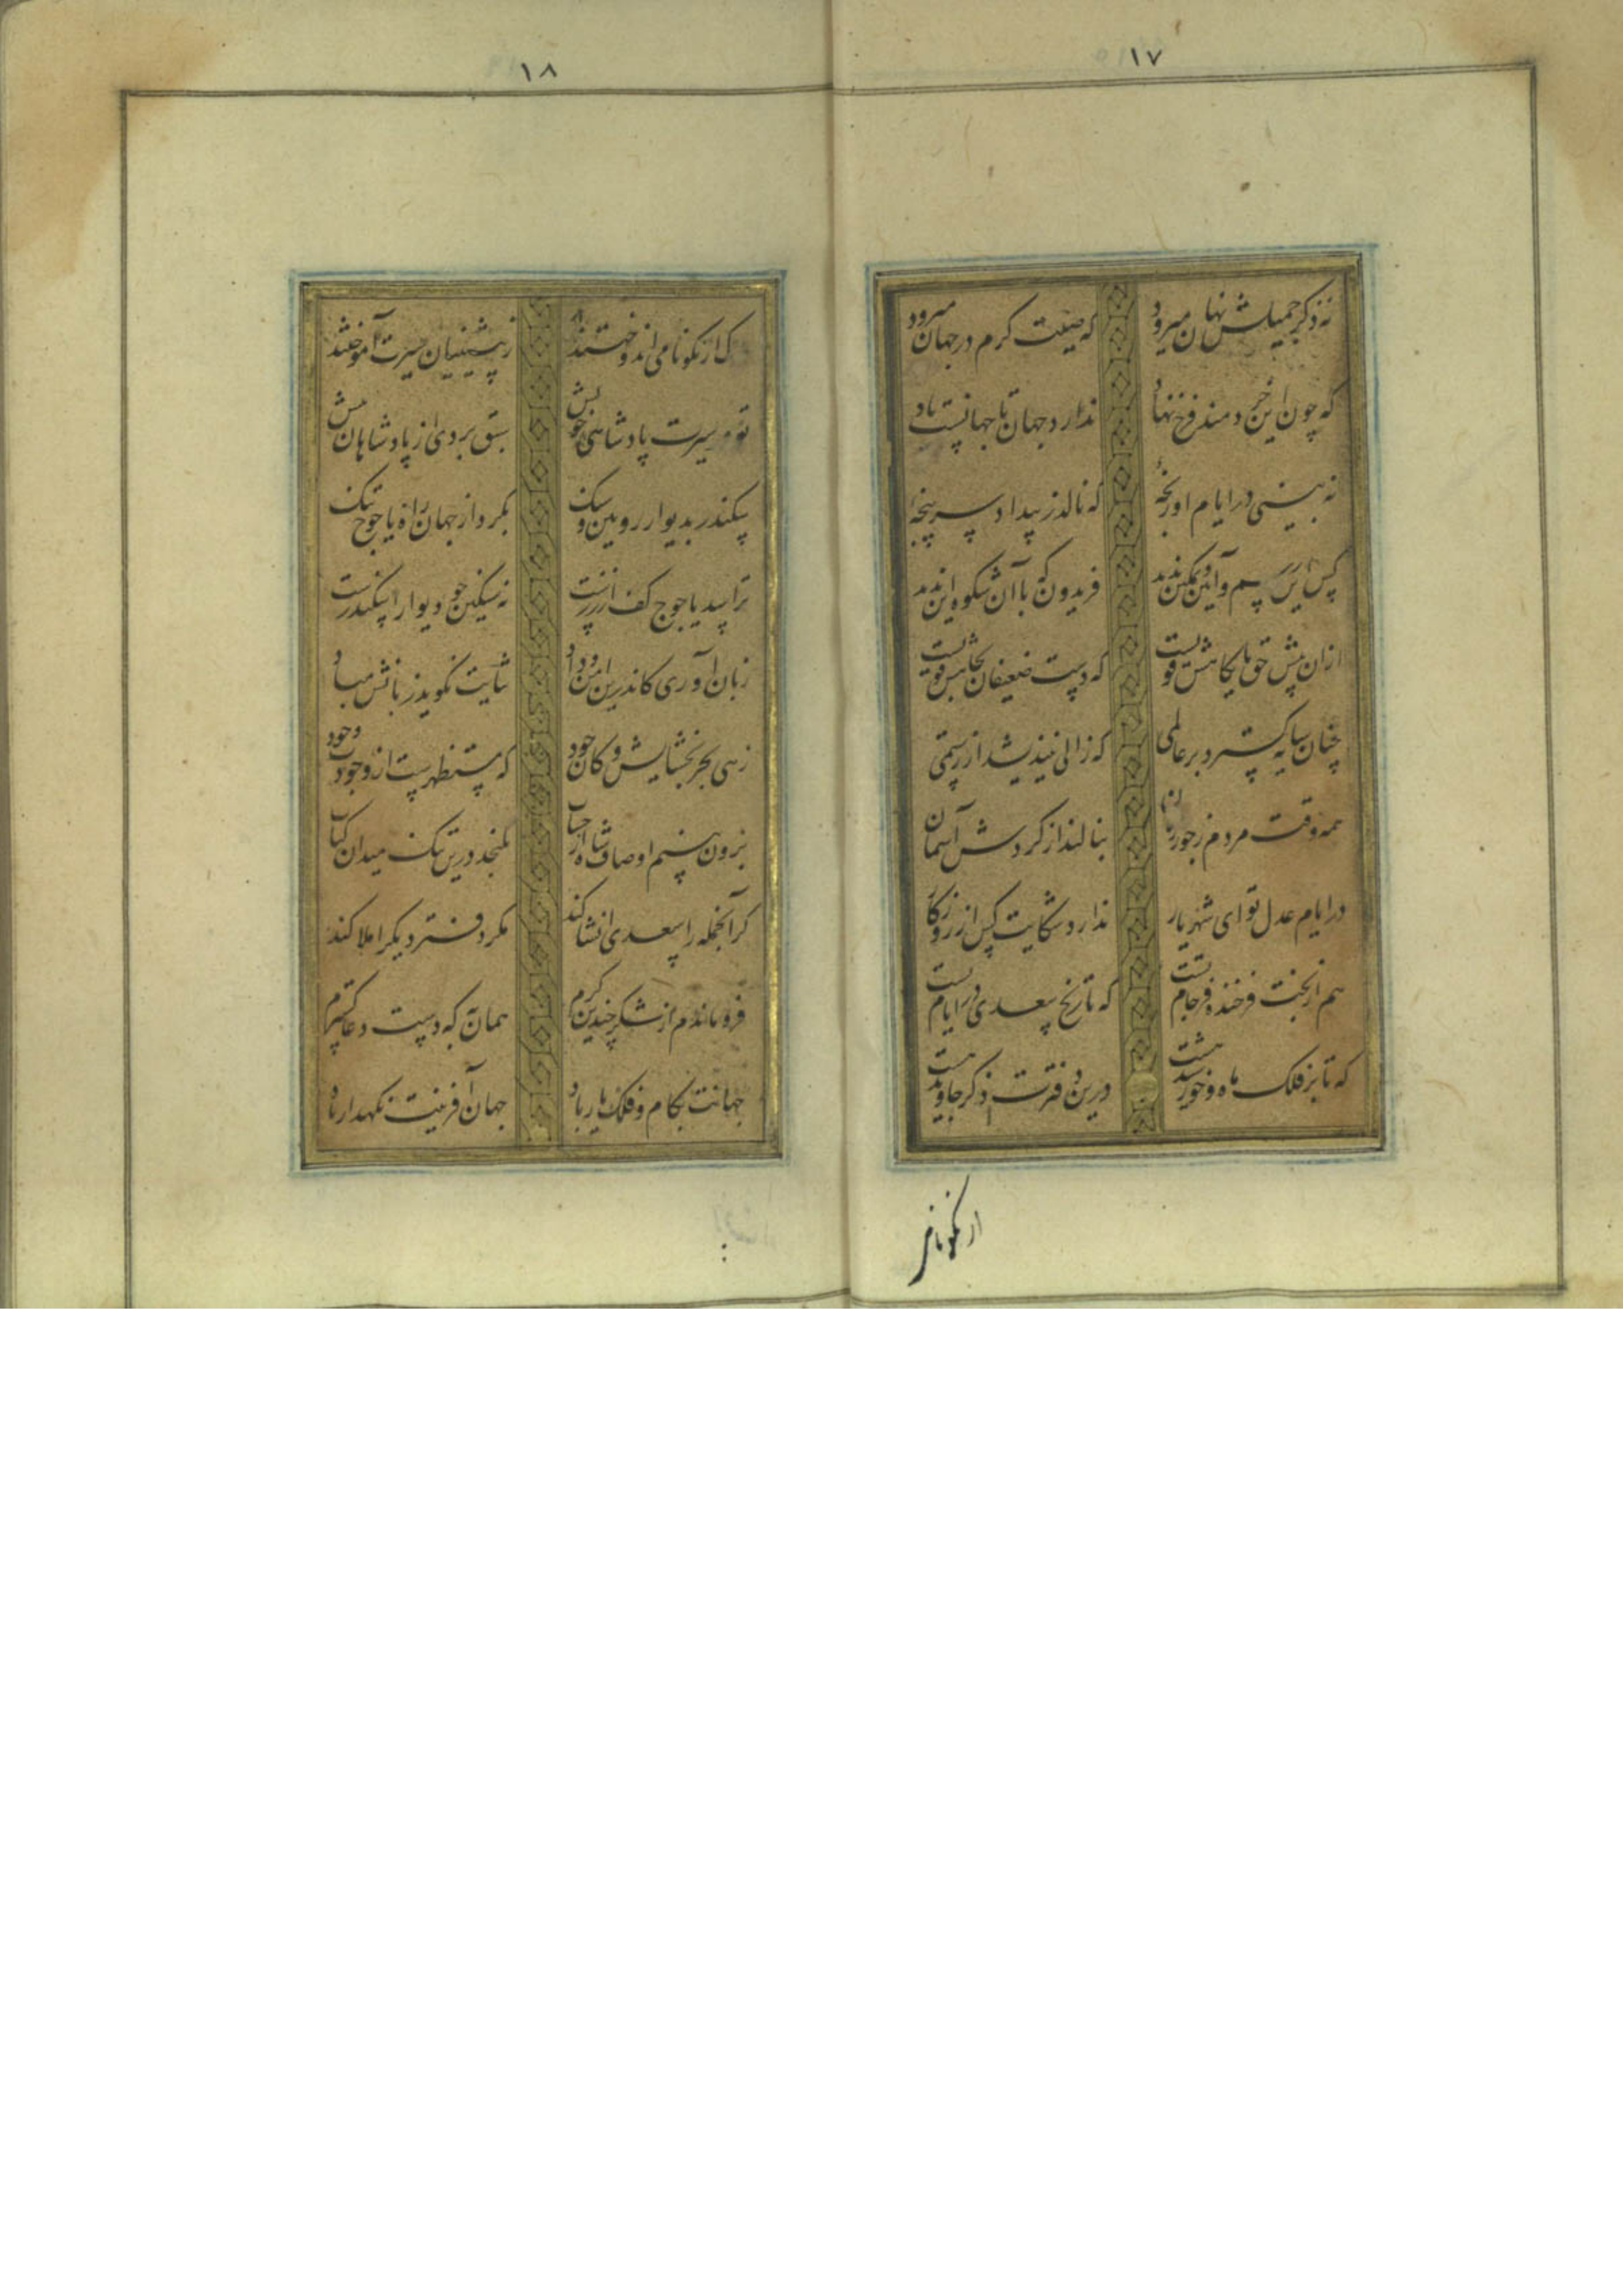 ١٧
نه ذکر جمیلش نهان میرود که صیت کرم در جهان میرود
که چون این خردمند فرخ نهاد ندارد جهان تا جهانست یاد
نه بینی در ایام او رنجه که نالد ز بیداد سر پنجه
کس این رسم و آیین و تمکین ندید فریدون که با آن شکوه این ندید
ازان پیش حق پایگاهش قویست که دست ضعیفان بجاهش قویست
چنان سایه گسترد بر عالمی که زالی نیندیشد از رستمی
همه وقت مردم ز جور زمان بنالند از گردش آسمان
در ایام عدل تو ای شهریار ندارد شکایت کس از روزگار
هم از بخت فرخنده فرجام تست که تاریخ سعدی در ایام تست
که تا بر فلک ماه و خورشید هست درین دفترت ذکر جاوید هست
ار نکونامی
١٨
گر از نکونامی اندوختند ز پیشینیان سیرت آموختند
تو در سیرت پادشاهی خویش سبق بردی از پادشاهان پیش
سکندر بدیوار رویین و سنگ بکرد از جهان راه یاجوج تنگ
ترا سد یاجوج کفر از زرست نه سنگین چو دیوار اسکندرست
زبان آوری کاندرین امن و داد ثنایت نگوید زبانش مباد
زهی بحر بخشایش و کان جود که مستظهرست از وجودت وجود
برون بینم اوصاف شاه از حساب نگنجد درین تنگ میدان کتاب
گر آنجمله را سعدی انشا کند مگر دفتر دیگر املا کند
فرو ماندم از شکر چندین کرم همان به که دست دعا گسترم
جهانت بکام و فلک یار باد جهان آفرینت نگهدار باد